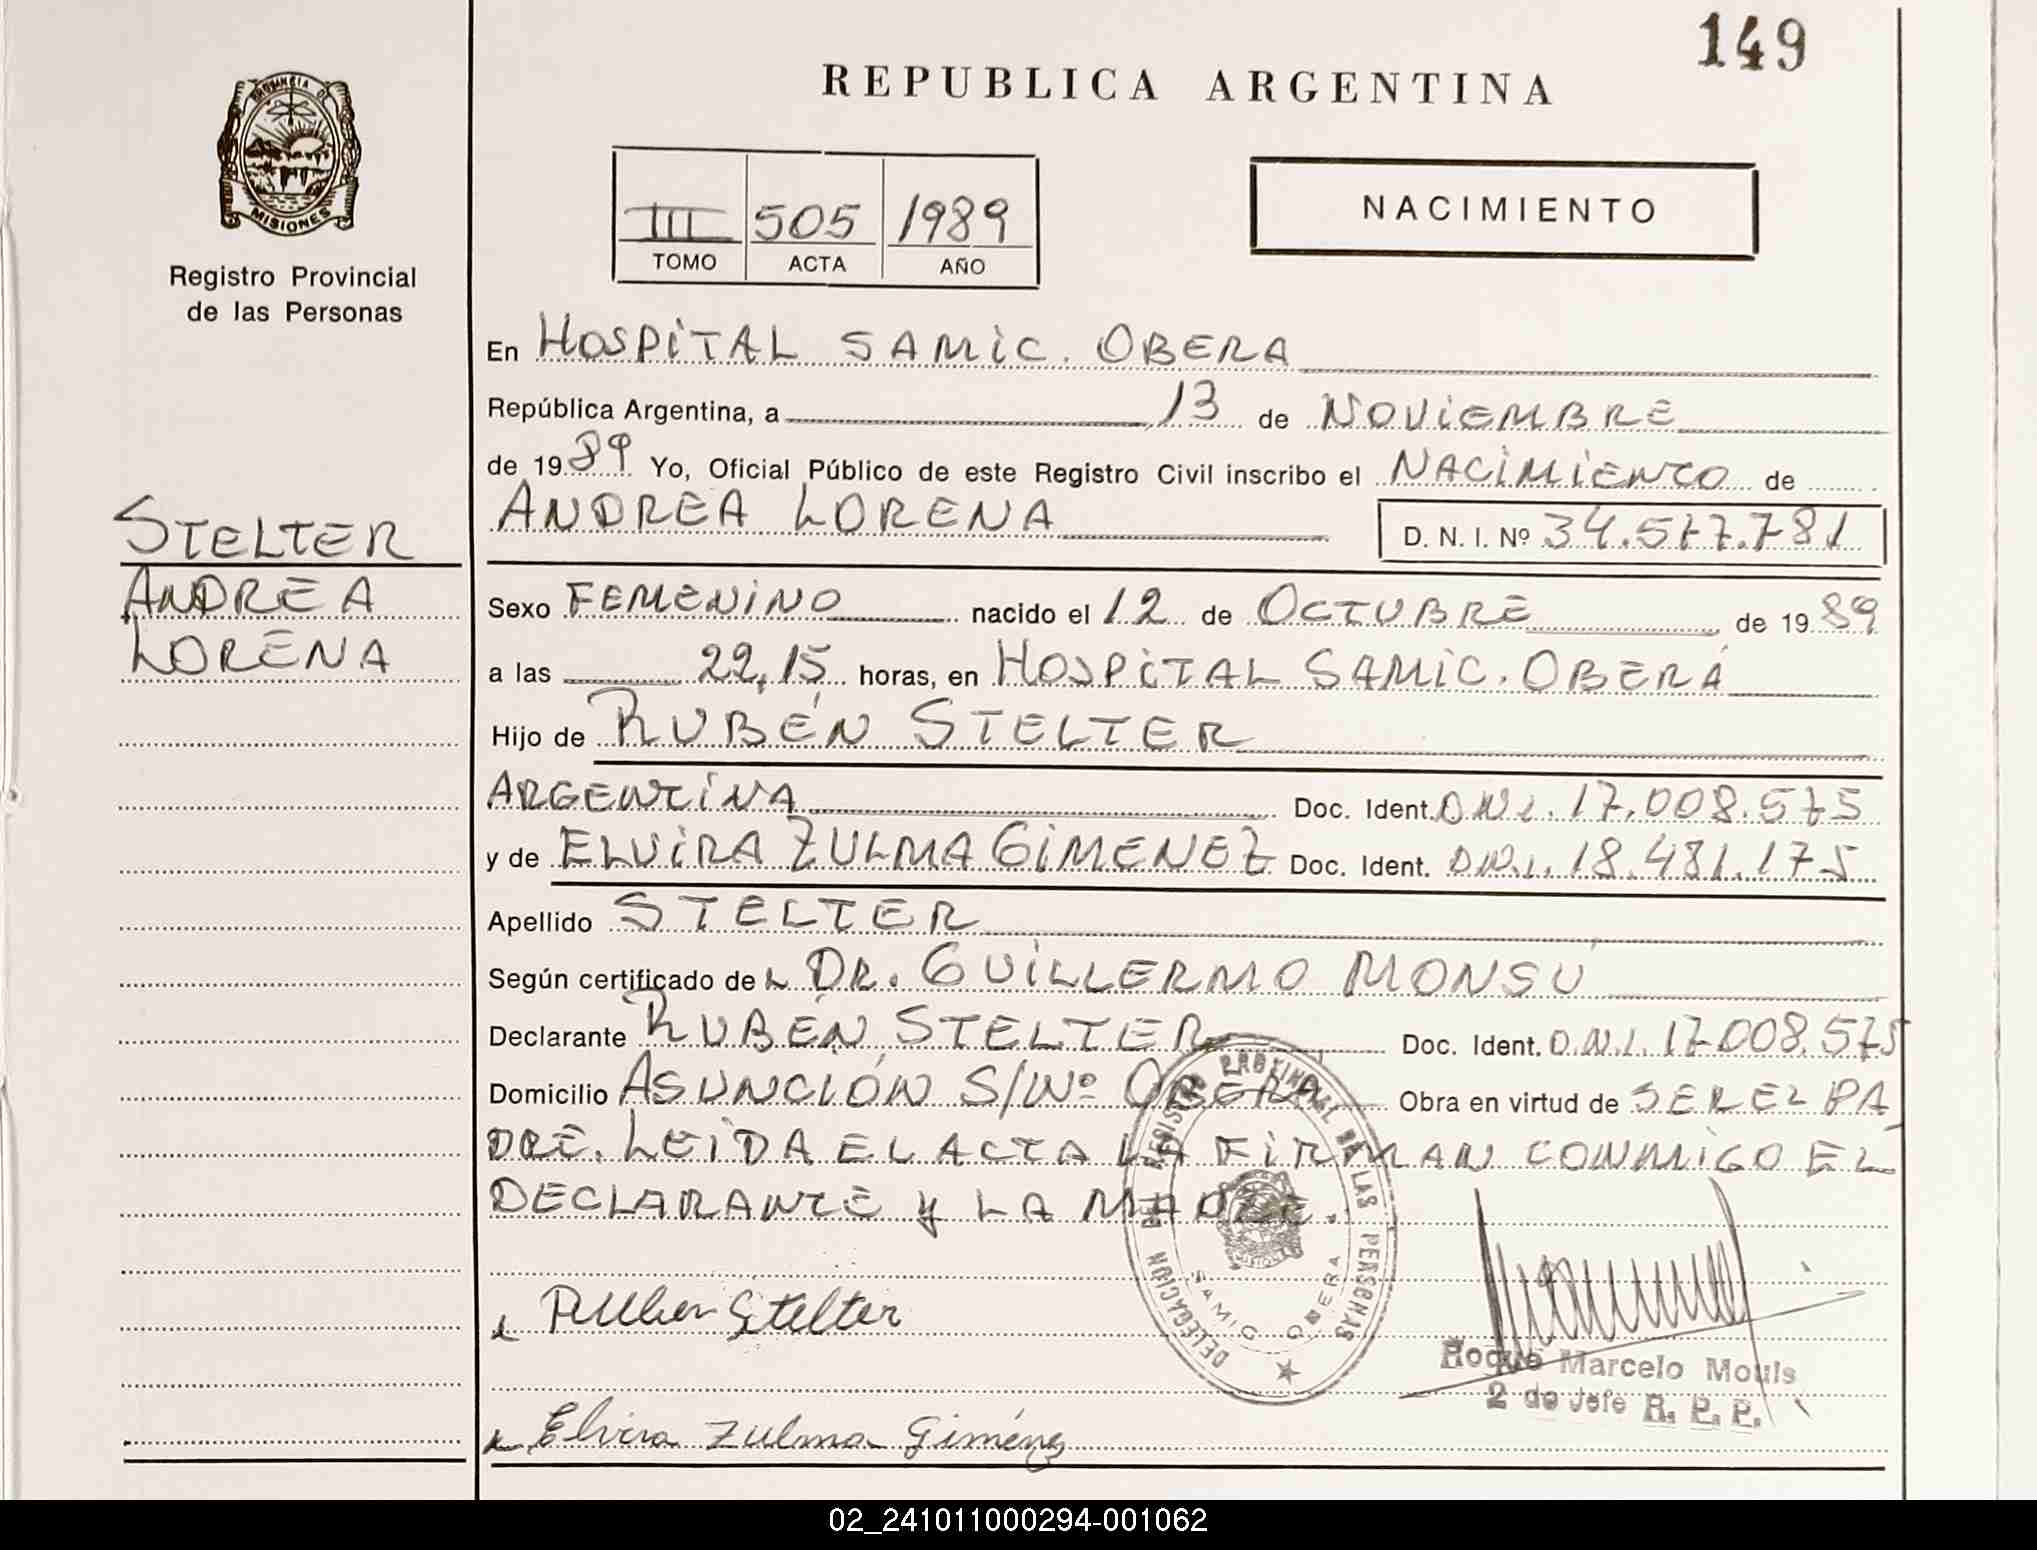 149
REPUBLICA ARGENTINA
PROVINCIA DE
MISIONES
Registro Provincial
de las Personas
III 505 1989
TOMO ACTA AÑO
NACIMIENTO
STELTER
ANDREA
LORENA
En HOSPITAL SAMIC. OBERA
República Argentina, a 13 de NOVIEMBRE
de 1989 Yo, Oficial Público de este Registro Civil inscribo el NACIMIENTO de
ANDREA LORENA D. N. I. Nº 34.577.781
Sexo FEMENINO nacido el 12 de OCTUBRE de 1989
a las 22,15 horas, en HOSPITAL SAMIC. OBERÁ
Hijo de RUBÉN STELTER
ARGENTINA Doc. Ident. D.N.I. 17.008.575
y de ELVIRA ZULMA GIMENEZ Doc. Ident. D.N.I. 18.481.175
Apellido STELTER
Según certificado del DR. GUILLERMO MONSÚ
Declarante RUBÉN STELTER Doc. Ident. D.N.I. 17.008.575
Domicilio ASUNCIÓN S/Nº OBERA Obra en virtud de SER EL PA
DRE. LEIDA EL ACTA LA FIRMAN CONMIGO EL
DECLARANTE Y LA MADRE.
DELEGACION DEL REGISTRO PROVINCIAL DE LAS PERSONAS
SAMIC OBERA
Stelter
Elvira Zulma Giménez
Roque Marcelo Mouls
2 do Jefe R. P. P.
02_241011000294-001062